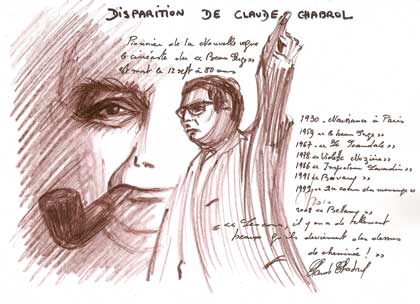 DISPARITION DE CLAUDE CHABROL
Pionnier de la Nouvelle vague
le cinéaste du « Beau Serge »
est mort le 12 sept à 80 ans
1930 - Naissance à Paris
1959 « le beau Serge »
1967 « Le Scandale »
1978 « Violette Nozière »
1986 « Inspecteur Lavardin »
1991 « Bovary »
« Au cœur du mensonge »
2008 « Bellamy »
il y en a de tellement
beaux qu'ils deviennent des dessus
de cheminée ! »
Claude Chabrol